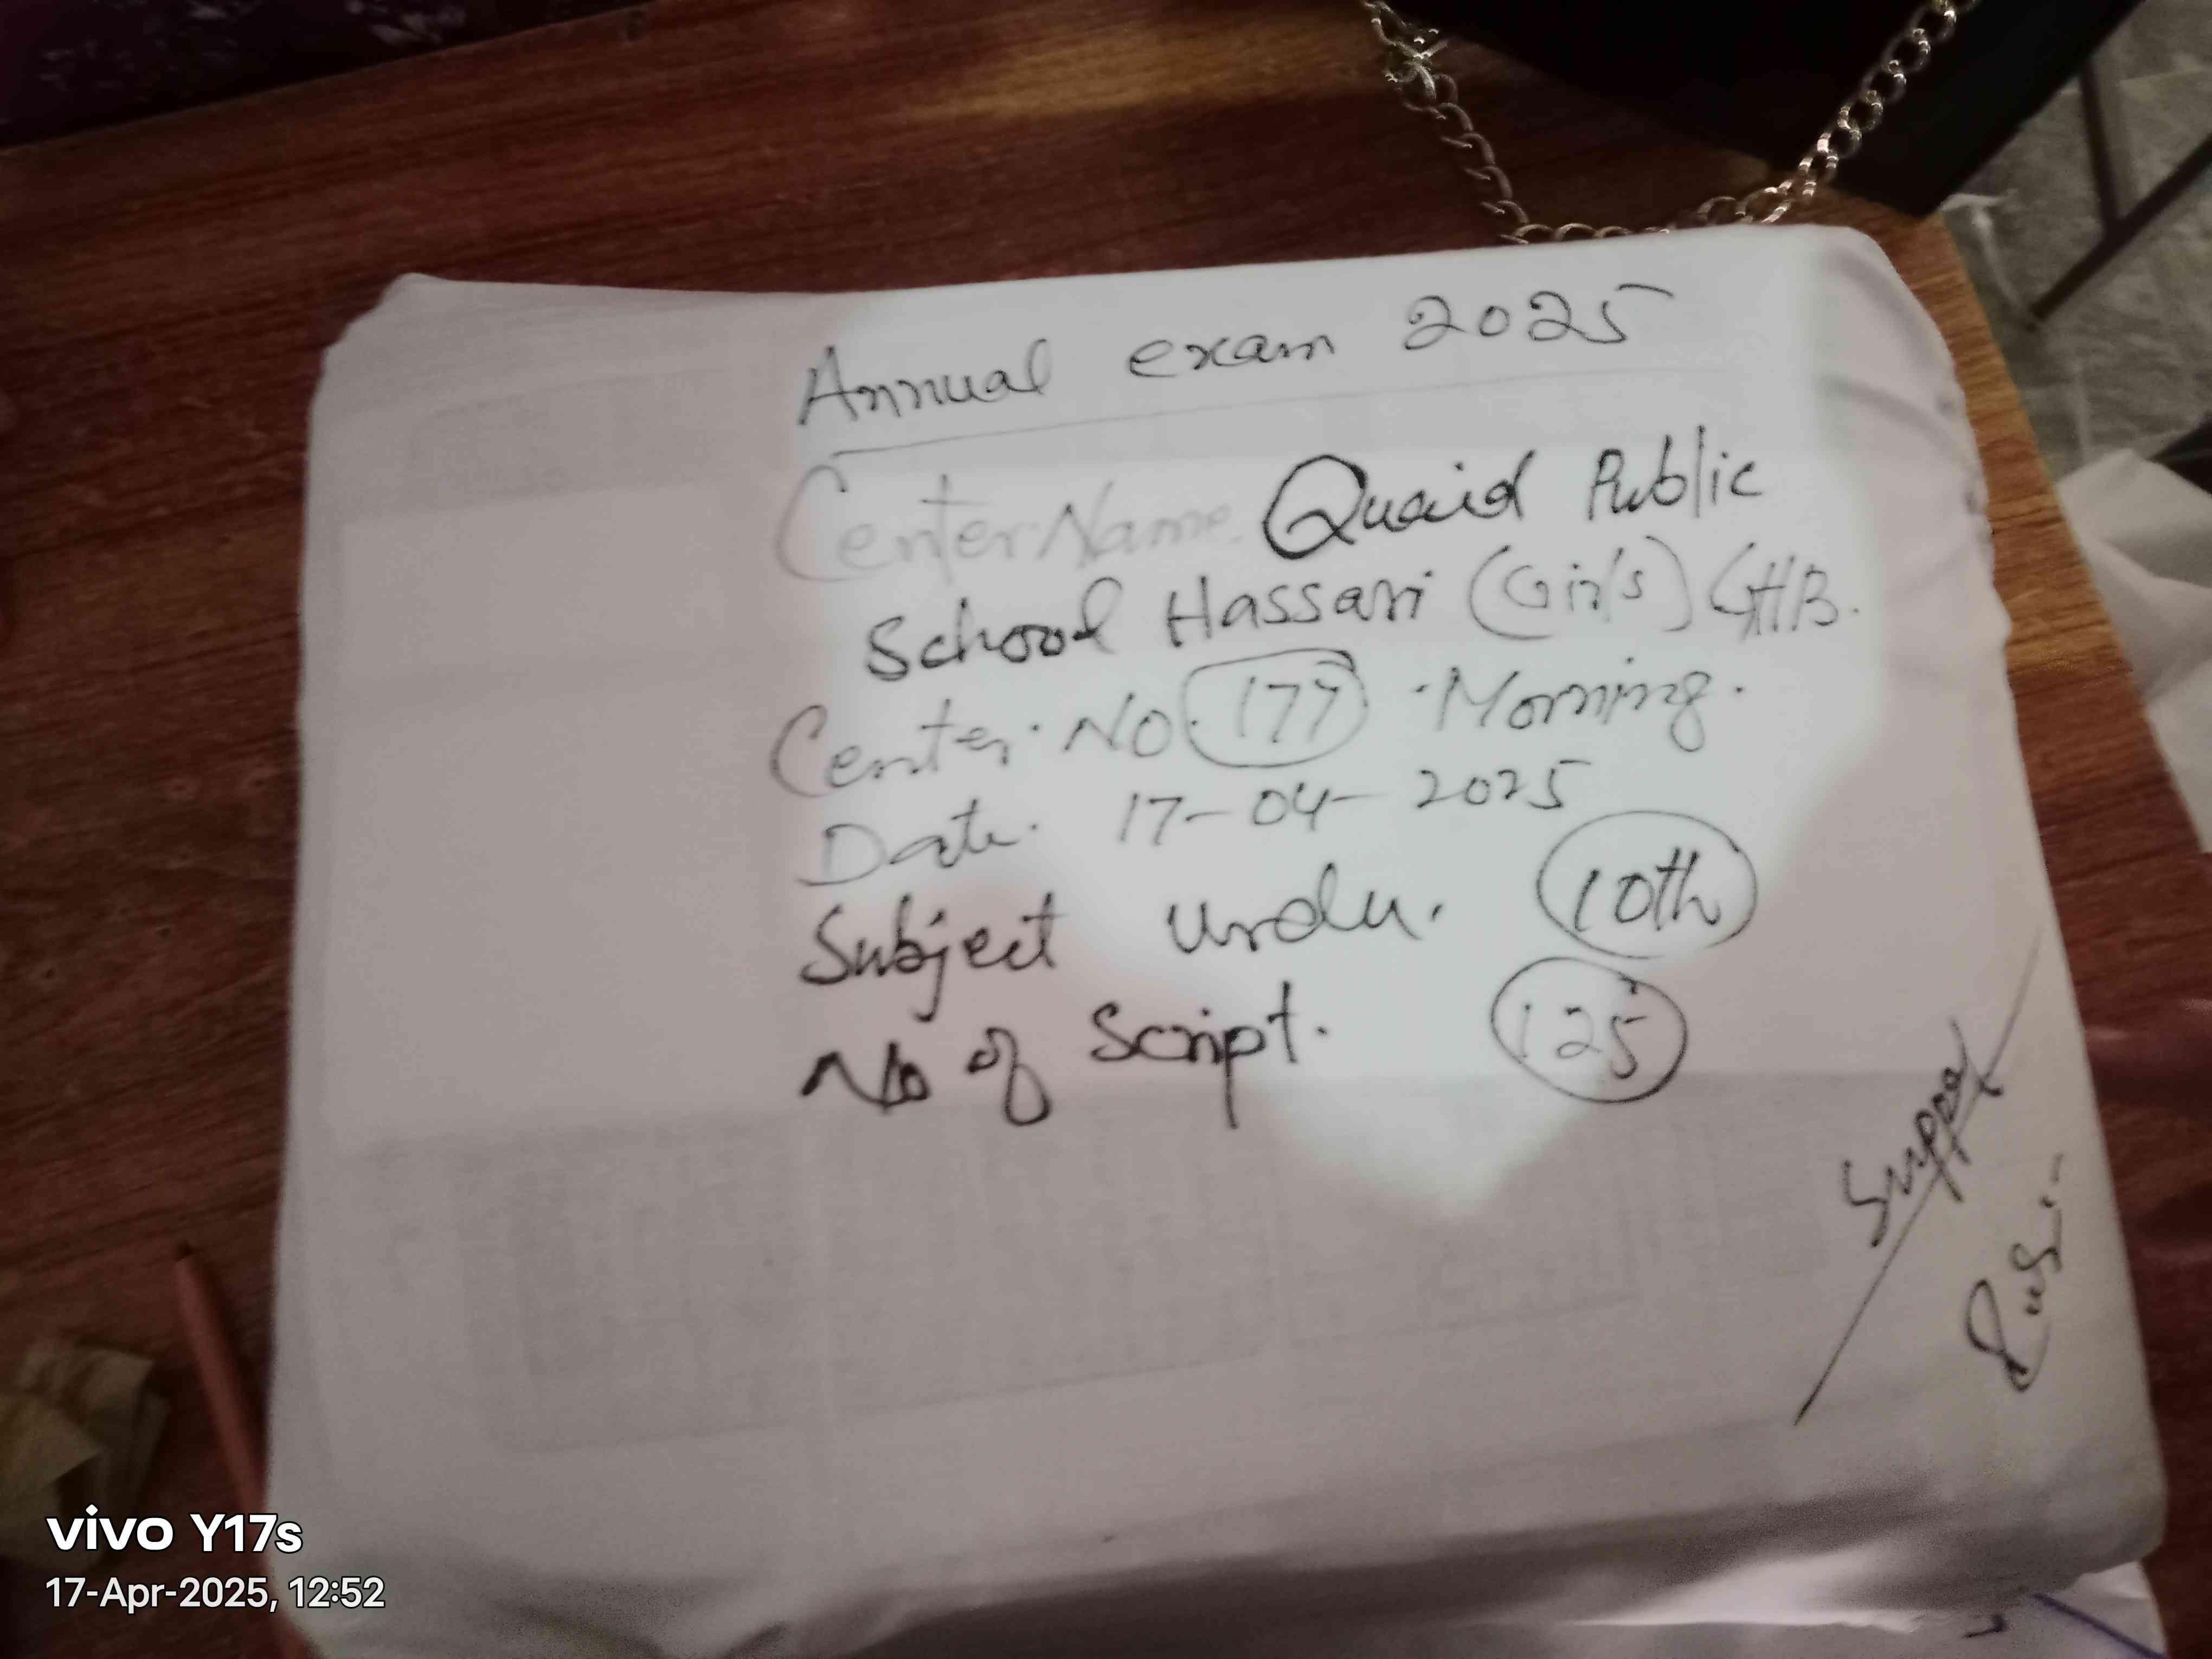 Annual exam 2025
Center Name. Quaid Public
School Hassari (Girls) GHB.
Center. No. 177 . Morning.
Date. 17-04-2025
Subject urdu. 10th
No of Script. 125
vivo Y17s
17-Apr-2025, 12:52